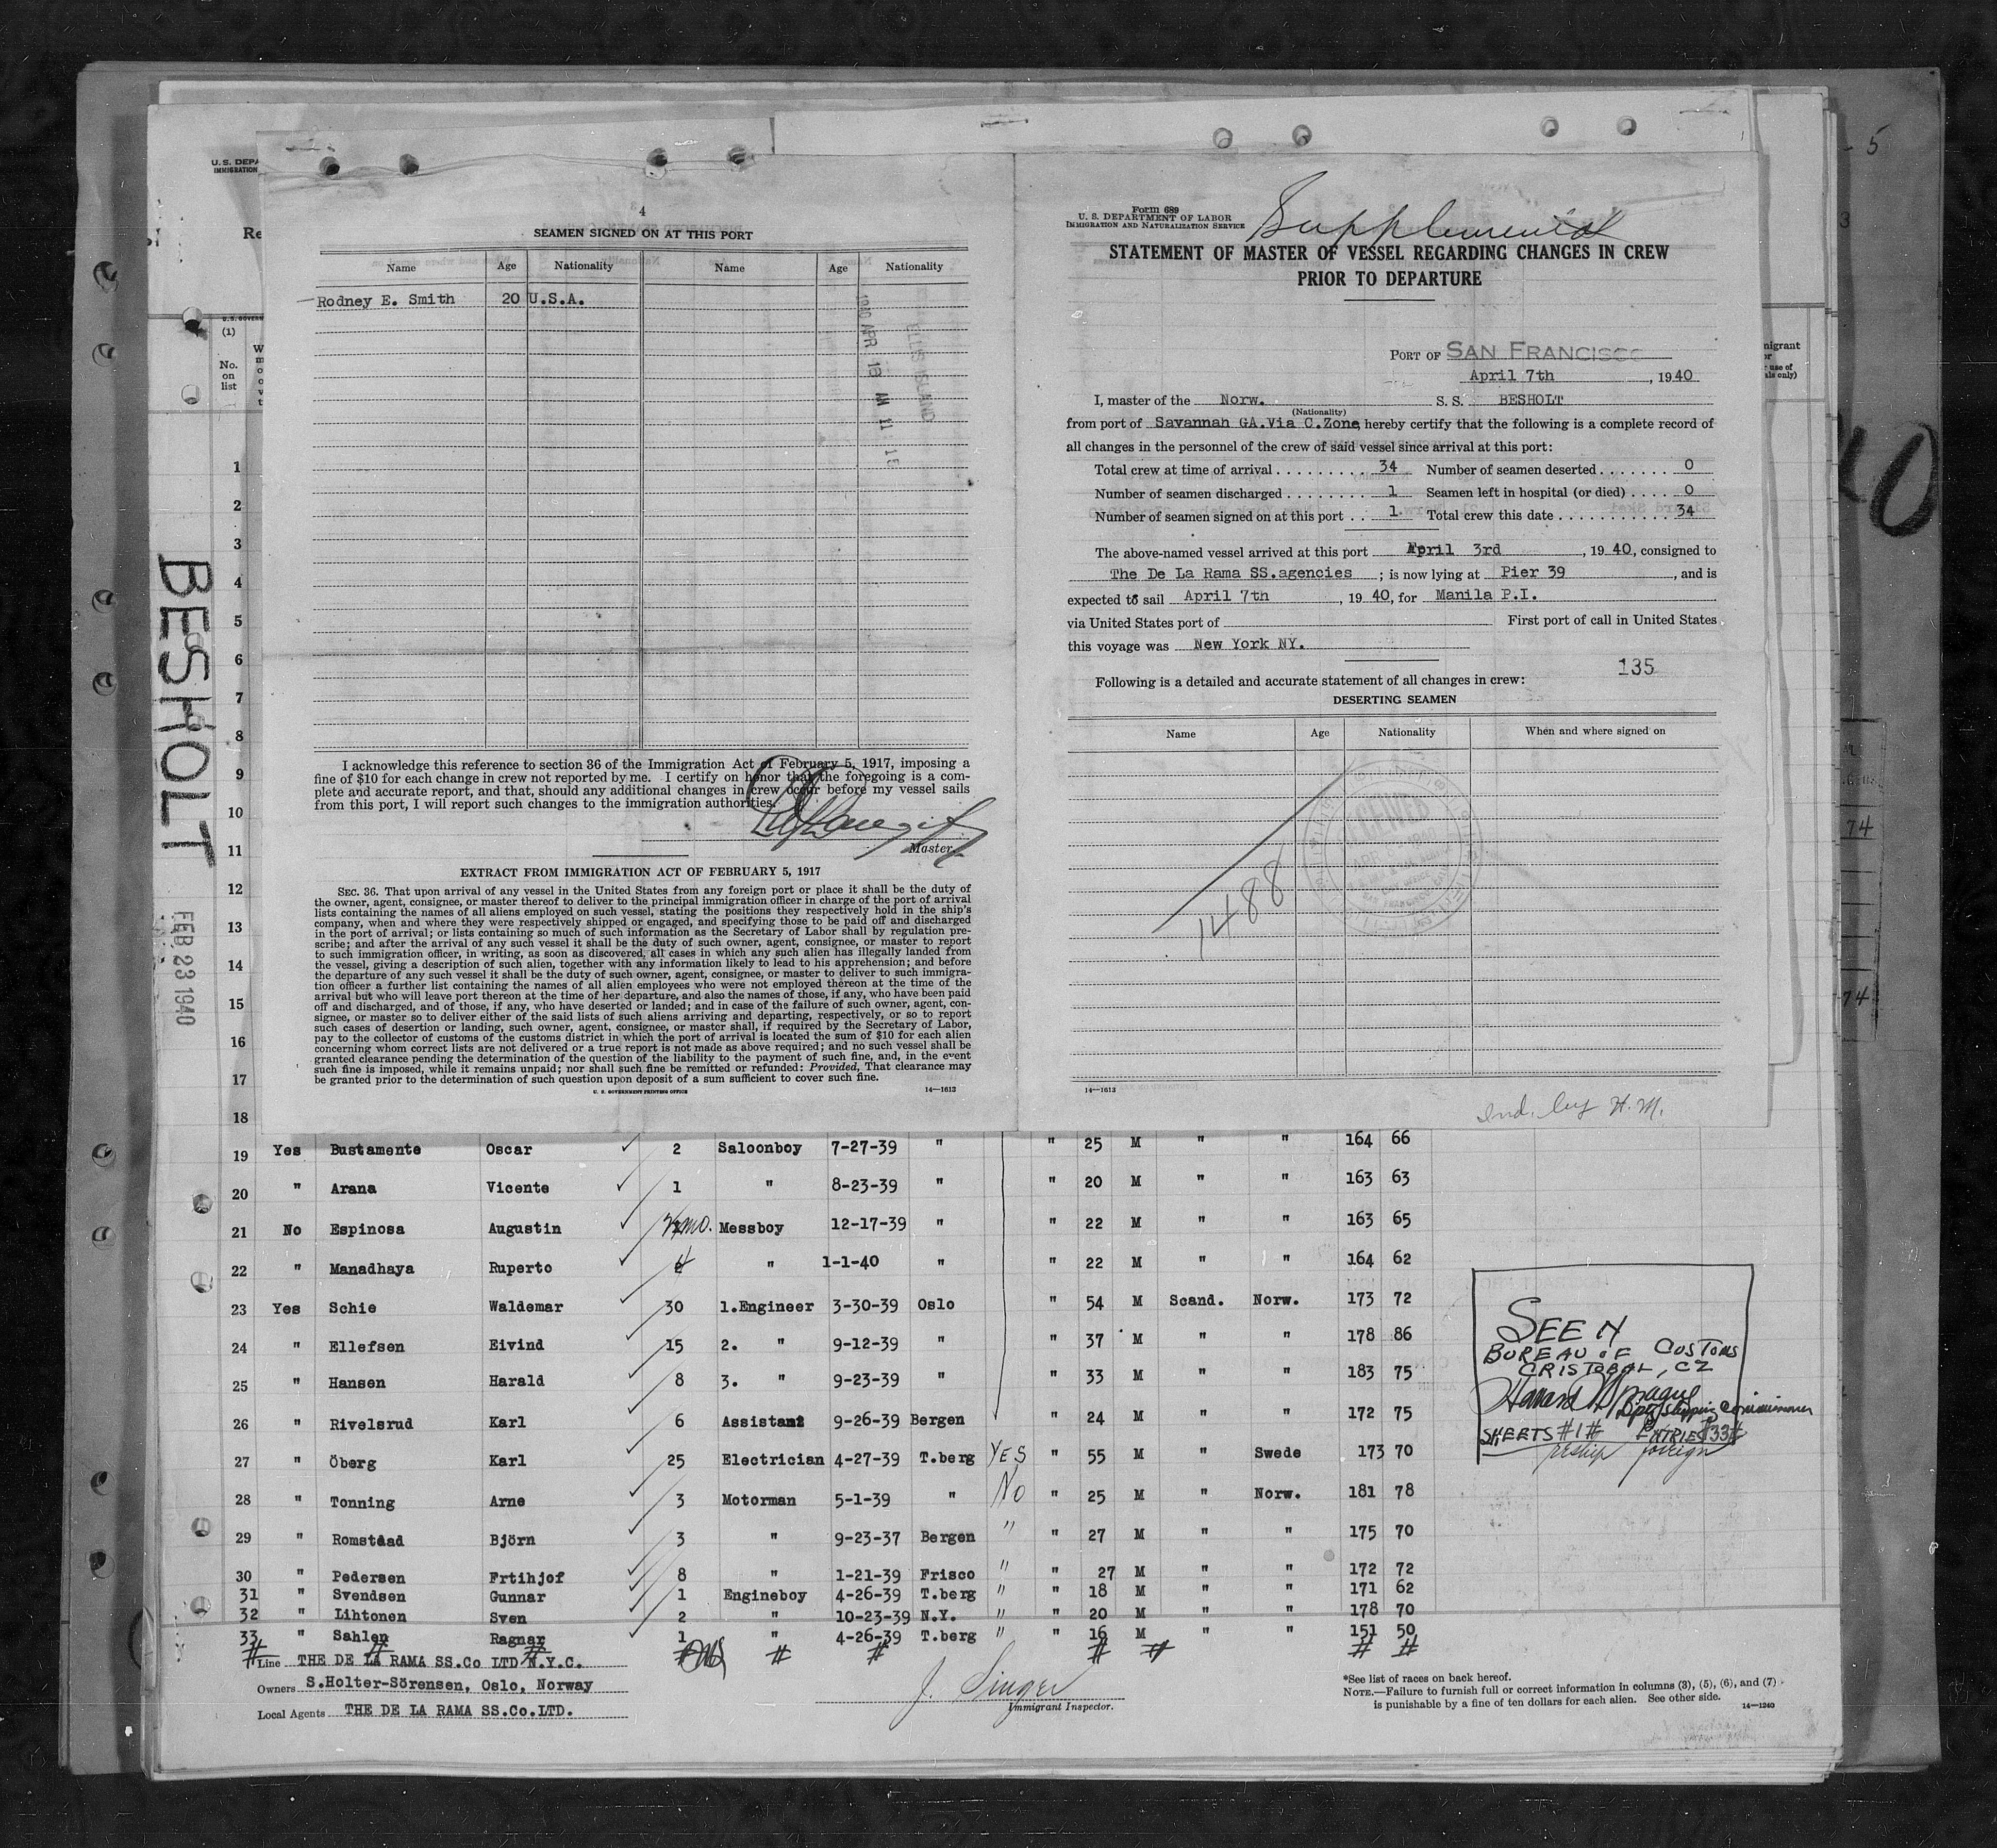 U. S. DEPA
IMMIGRATION
Re
U.S. GOVERN
(1)
No.
on
list
4
SEAMEN SIGNED ON AT THIS PORT
Name Age Nationality Name Age Nationality
Rodney E. Smith 20 U.S.A.
1940 APR 18 AM 11 15
ELLIS ISLAND
I acknowledge this reference to section 36 of the Immigration Act of February 5, 1917, imposing a
fine of $10 for each change in crew not reported by me. I certify on honor that the foregoing is a com-
plete and accurate report, and that, should any additional changes in crew occur before my vessel sails
from this port, I will report such changes to the immigration authorities.
Master.
EXTRACT FROM IMMIGRATION ACT OF FEBRUARY 5, 1917
SEC. 36. That upon arrival of any vessel in the United States from any foreign port or place it shall be the duty of
the owner, agent, consignee, or master thereof to deliver to the principal immigration officer in charge of the port of arrival
lists containing the names of all aliens employed on such vessel, stating the positions they respectively hold in the ship's
company, when and where they were respectively shipped or engaged, and specifying those to be paid off and discharged
in the port of arrival; or lists containing so much of such information as the Secretary of Labor shall by regulation pre-
scribe; and after the arrival of any such vessel it shall be the duty of such owner, agent, consignee, or master to report
to such immigration officer, in writing, as soon as discovered, all cases in which any such alien has illegally landed from
the vessel, giving a description of such alien, together with any information likely to lead to his apprehension; and before
the departure of any such vessel it shall be the duty of such owner, agent, consignee, or master to deliver to such immigra-
tion officer a further list containing the names of all alien employees who were not employed thereon at the time of the
arrival but who will leave port thereon at the time of her departure, and also the names of those, if any, who have been paid
off and discharged, and of those, if any, who have deserted or landed; and in case of the failure of such owner, agent, con-
signee, or master so to deliver either of the said lists of such aliens arriving and departing, respectively, or so to report
such cases of desertion or landing, such owner, agent, consignee, or master shall, if required by the Secretary of Labor,
pay to the collector of customs of the customs district in which the port of arrival is located the sum of $10 for each alien
concerning whom correct lists are not delivered or a true report is not made as above required; and no such vessel shall be
granted clearance pending the determination of the question of the liability to the payment of such fine, and, in the event
such fine is imposed, while it remains unpaid; nor shall such fine be remitted or refunded: Provided, That clearance may
be granted prior to the determination of such question upon deposit of a sum sufficient to cover such fine.
U. S. GOVERNMENT PRINTING OFFICE 14—1613
Form 689
U. S. DEPARTMENT OF LABOR
IMMIGRATION AND NATURALIZATION SERVICE
Supplemental
STATEMENT OF MASTER OF VESSEL REGARDING CHANGES IN CREW
PRIOR TO DEPARTURE
PORT OF SAN FRANCISCO
April 7th, 1940
I, master of the Norw. S. S. BESHOLT
(Nationality)
from port of Savannah GA.Via C.Zone, hereby certify that the following is a complete record of
all changes in the personnel of the crew of said vessel since arrival at this port:
Total crew at time of arrival 34 Number of seamen deserted 0
Number of seamen discharged 1 Seamen left in hospital (or died) 0
Number of seamen signed on at this port 1 Total crew this date 34
The above-named vessel arrived at this port April 3rd, 1940, consigned to
The De La Rama SS.agencies; is now lying at Pier 39, and is
expected to sail April 7th, 1940, for Manila P.I.
via United States port of First port of call in United States
this voyage was New York NY.
135
Following is a detailed and accurate statement of all changes in crew:
DESERTING SEAMEN
Name Age Nationality When and where signed on
RECEIVED
1488
14—1613
Ind. by H.M.
migrant
or
use of
als only)
5
3
40
74
74
BESHOLT
FEB 23 1940
1
2
3
4
5
6
7
8
9
10
11
12
13
14
15
16
17
18
19 Yes Bustamente Oscar 2 Saloonboy 7-27-39 " " 25 M " " 164 66
20 " Arana Vicente 1 " 8-23-39 " " 20 M " " 163 63
21 No Espinosa Augustin mo. Messboy 12-17-39 " " 22 M " " 163 65
22 " Manadhaya Ruperto " 1-1-40 " " 22 M " " 164 62
23 Yes Schie Waldemar 30 1.Engineer 3-30-39 Oslo " 54 M Scand. Norw. 173 72
24 " Ellefsen Eivind 15 2. " 9-12-39 " " 37 M " " 178 86
25 " Hansen Harald 8 3. " 9-23-39 " " 33 M " " 183 75
26 " Rivelsrud Karl 6 Assistant 9-26-39 Bergen " 24 M " " 172 75
27 " Öberg Karl 25 Electrician 4-27-39 T.berg YES " 55 M " Swede 173 70
28 " Tonning Arne 3 Motorman 5-1-39 " No " 25 M " Norw. 181 78
29 " Romstaad Björn 3 " 9-23-37 Bergen " " 27 M " " 175 70
30 " Pedersen Frtihjof 8 " 1-21-39 Frisco " " 27 M " " 172 72
31 " Svendsen Gunnar 1 Engineboy 4-26-39 T.berg " " 18 M " " 171 62
32 " Lihtonen Sven 2 " 10-23-39 N.Y. " " 20 M " " 178 70
33 " Sahlen Ragnar 1 " 4-26-39 T.berg " " 16 M " " 151 50
# # # # # # # # # #
SEEN
BUREAU OF CUSTOMS
CRISTOBAL, CZ
Howard Sprague
Dpty Shipping Commissioner
SHEETS #1# ENTRIES #33#
foreign
Line THE DE LA RAMA SS.Co LTD N.Y.C.
Owners S.Holter-Sörensen, Oslo, Norway
Local Agents THE DE LA RAMA SS.Co.LTD.
J. Singer
Immigrant Inspector.
*See list of races on back hereof.
NOTE.—Failure to furnish full or correct information in columns (3), (5), (6), and (7)
is punishable by a fine of ten dollars for each alien. See other side. 14—1240